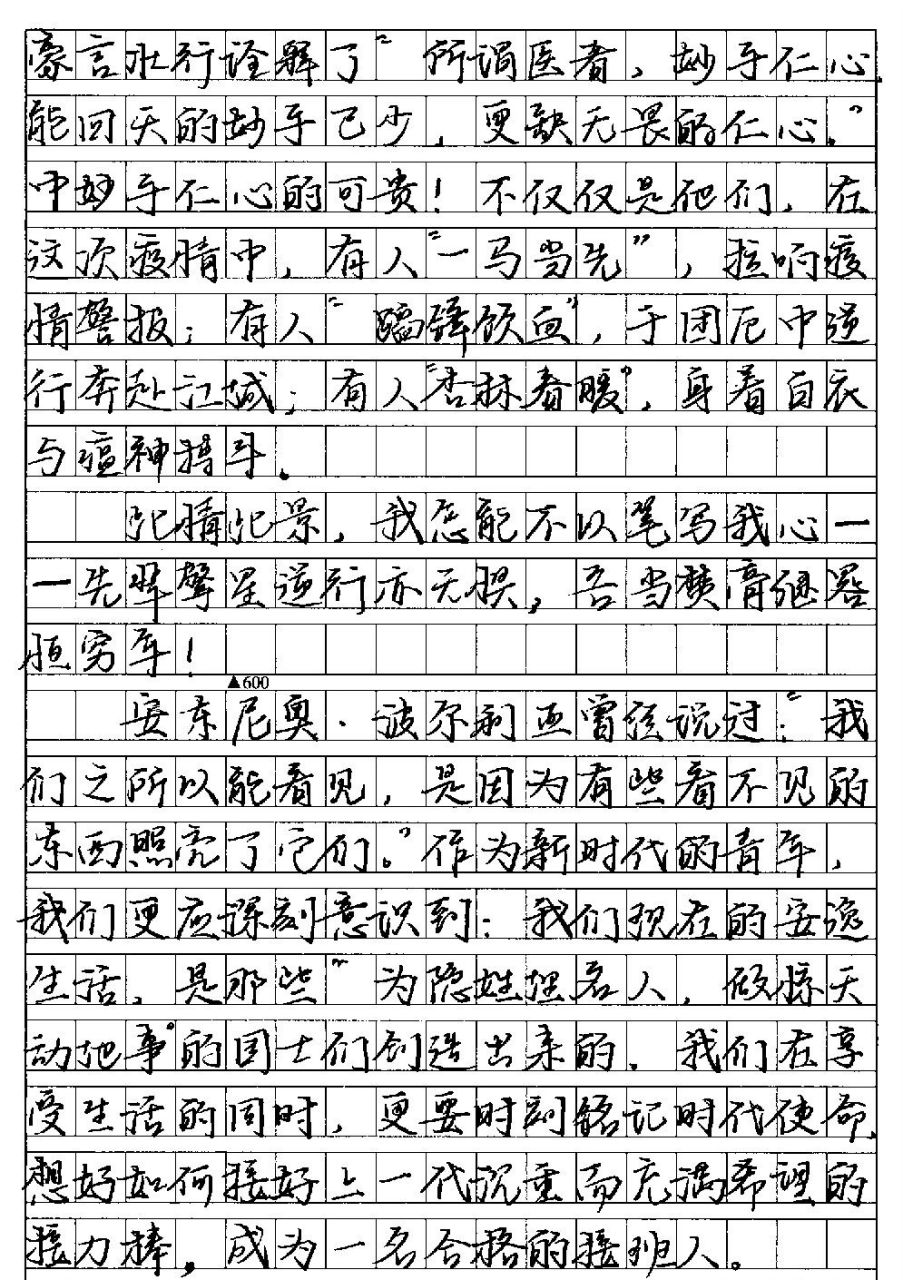 豪言壮行诠释了“所谓医者，妙手仁心，
能回天的妙手已少，更缺无畏的仁心。”
中妙手仁心的可贵！不仅仅是他们，在
这次疫情中，有人“一马当先”，拉响疫
情警报；有人“蹈锋饮血”，于困厄中逆
行奔赴江城；有人“杏林春暖”，身着白衣
与瘟神搏斗。
此情此景，我怎能不以笔写我心一
一先辈擎星逆行亦无惧，吾当焚膏继晷
恒穷年！
▲600
安东尼奥·波尔利亚曾经说过：“我
们之所以能看见，是因为有些看不见的
东西照亮了它们。”作为新时代的青年，
我们更应深刻意识到：我们现在的安逸
生活，是那些“为隐姓埋名人，做惊天
动地事”的国士们创造出来的。我们在享
受生活的同时，更要时刻铭记时代使命，
想好如何接好上一代沉重而充满希望的
接力棒，成为一名合格的接班人。